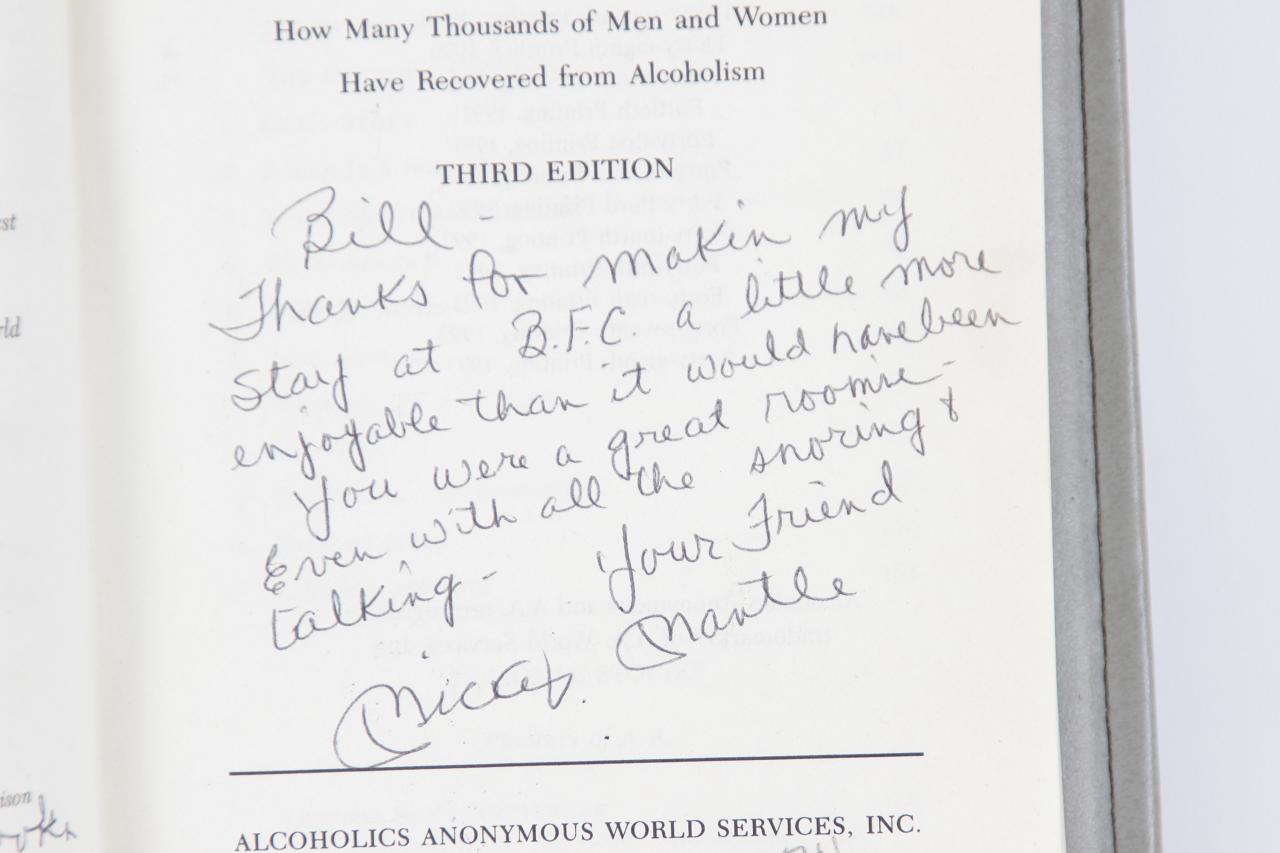 How Many Thousands of Men and Women
Have Recovered from Alcoholism
THIRD EDITION
Bill -
Thanks for makin my
Stay at B.F.C a little more
enjoyable than it would have been
You were a great roomie -
Even with all the snoring &
talking - Your Friend
Mickey Mantle
ALCOHOLICS ANONYMOUS WORLD SERVICES, INC.
st
rld
ison